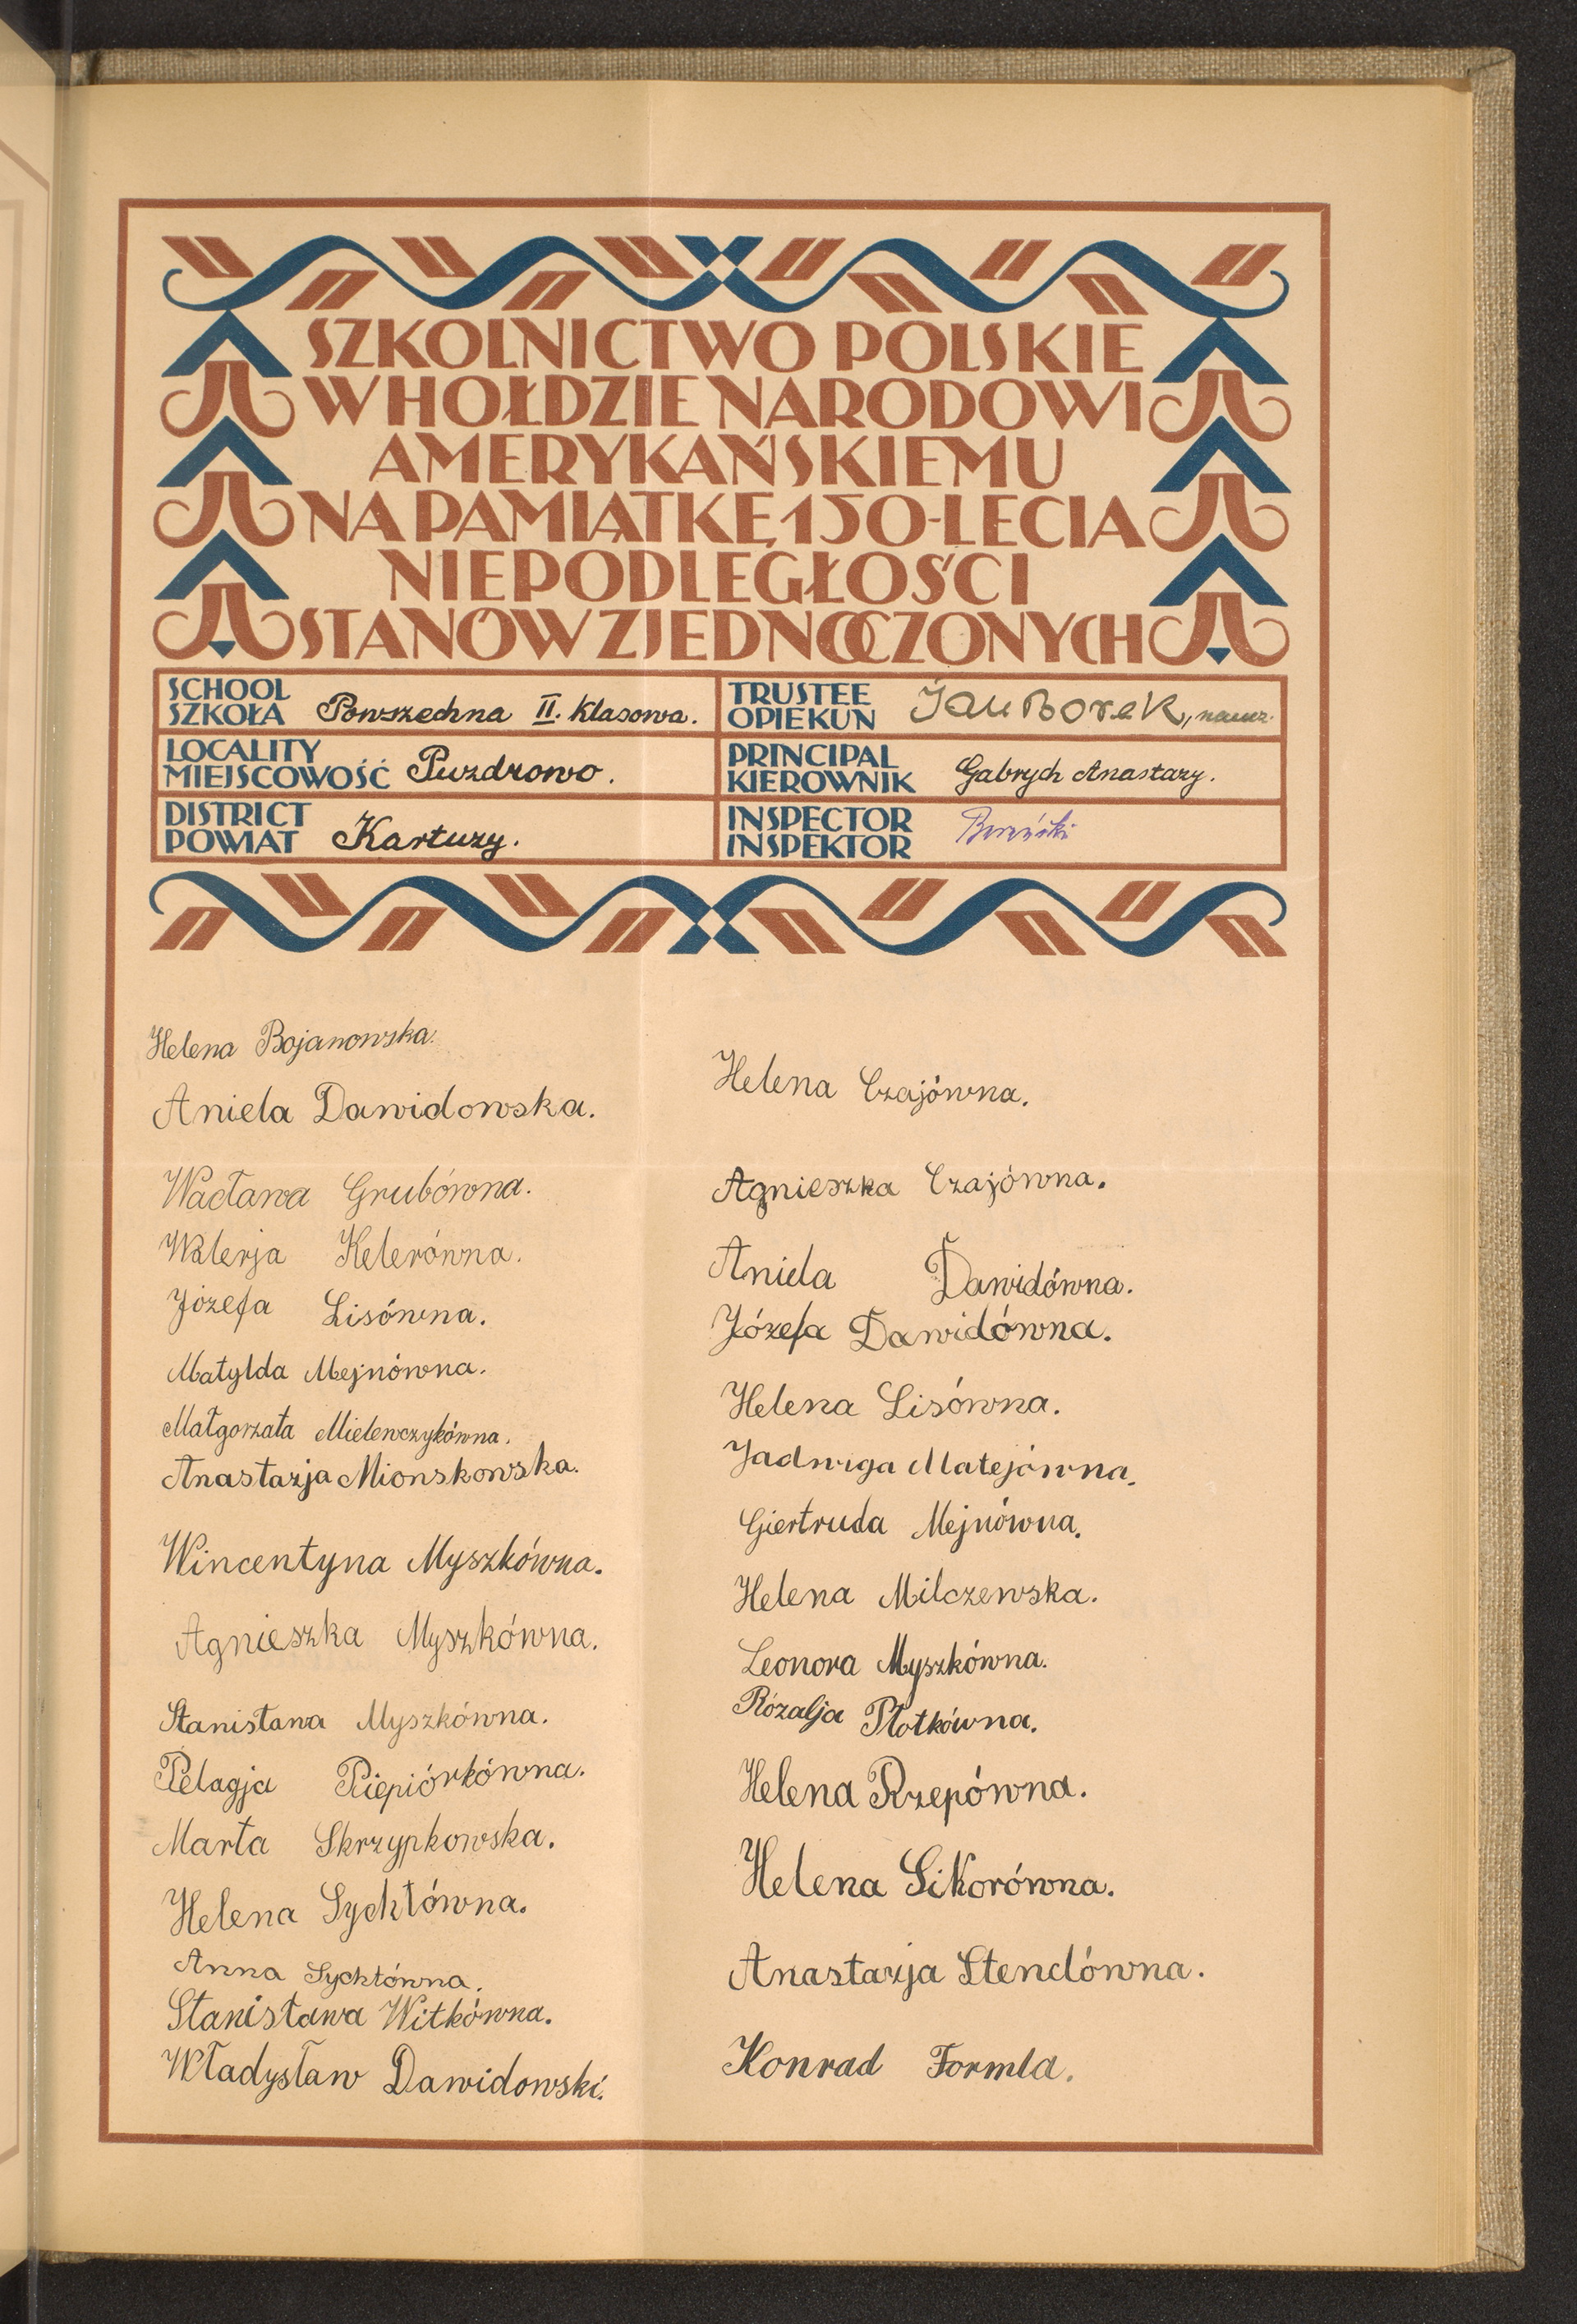 SZKOLNICTWO POLSKIE
W HOŁDZIE NARODOWI
AMERYKAŃSKIEMU
NA PAMIĄTKĘ 150-LECIA
NIEPODLEGŁOŚCI
STANÓW ZJEDNOCZONYCH
SCHOOL
SZKOŁA Powszechna II. klasowa.
TRUSTEE
OPIEKUN Jan Borek, naucz.
LOCALITY
MIEJSCOWOŚĆ Puzdrowo.
PRINCIPAL
KIEROWNIK Gabrych Anastazy.
DISTRICT
POWIAT Kartuzy.
INSPECTOR
INSPEKTOR
Helena Bojanowska.
Aniela Dawidowska.
Wacława Grubówna.
Walerja Kelerówna.
Józefa Lisówna.
Matylda Mejnówna.
Małgorzata Mielewczykówna.
Anastazja Mionskowska.
Wincentyna Myszkówna.
Agnieszka Myszkówna.
Stanisława Myszkówna.
Pelagja Piepiórkówna.
Marta Skrzypkowska.
Helena Sychtówna.
Anna Sychtówna.
Stanisława Witkówna.
Władysław Dawidowski.
Helena Czajówna.
Agnieszka Czajówna.
Aniela Dawidówna.
Józefa Dawidówna.
Helena Lisówna.
Jadwiga Matejówna.
Giertruda Mejnówna.
Helena Milczewska.
Leonora Myszkówna.
Rózalja Płotkówna.
Helena Rzepówna.
Helena Sikorówna.
Anastazja Stenclówna.
Konrad Formla.